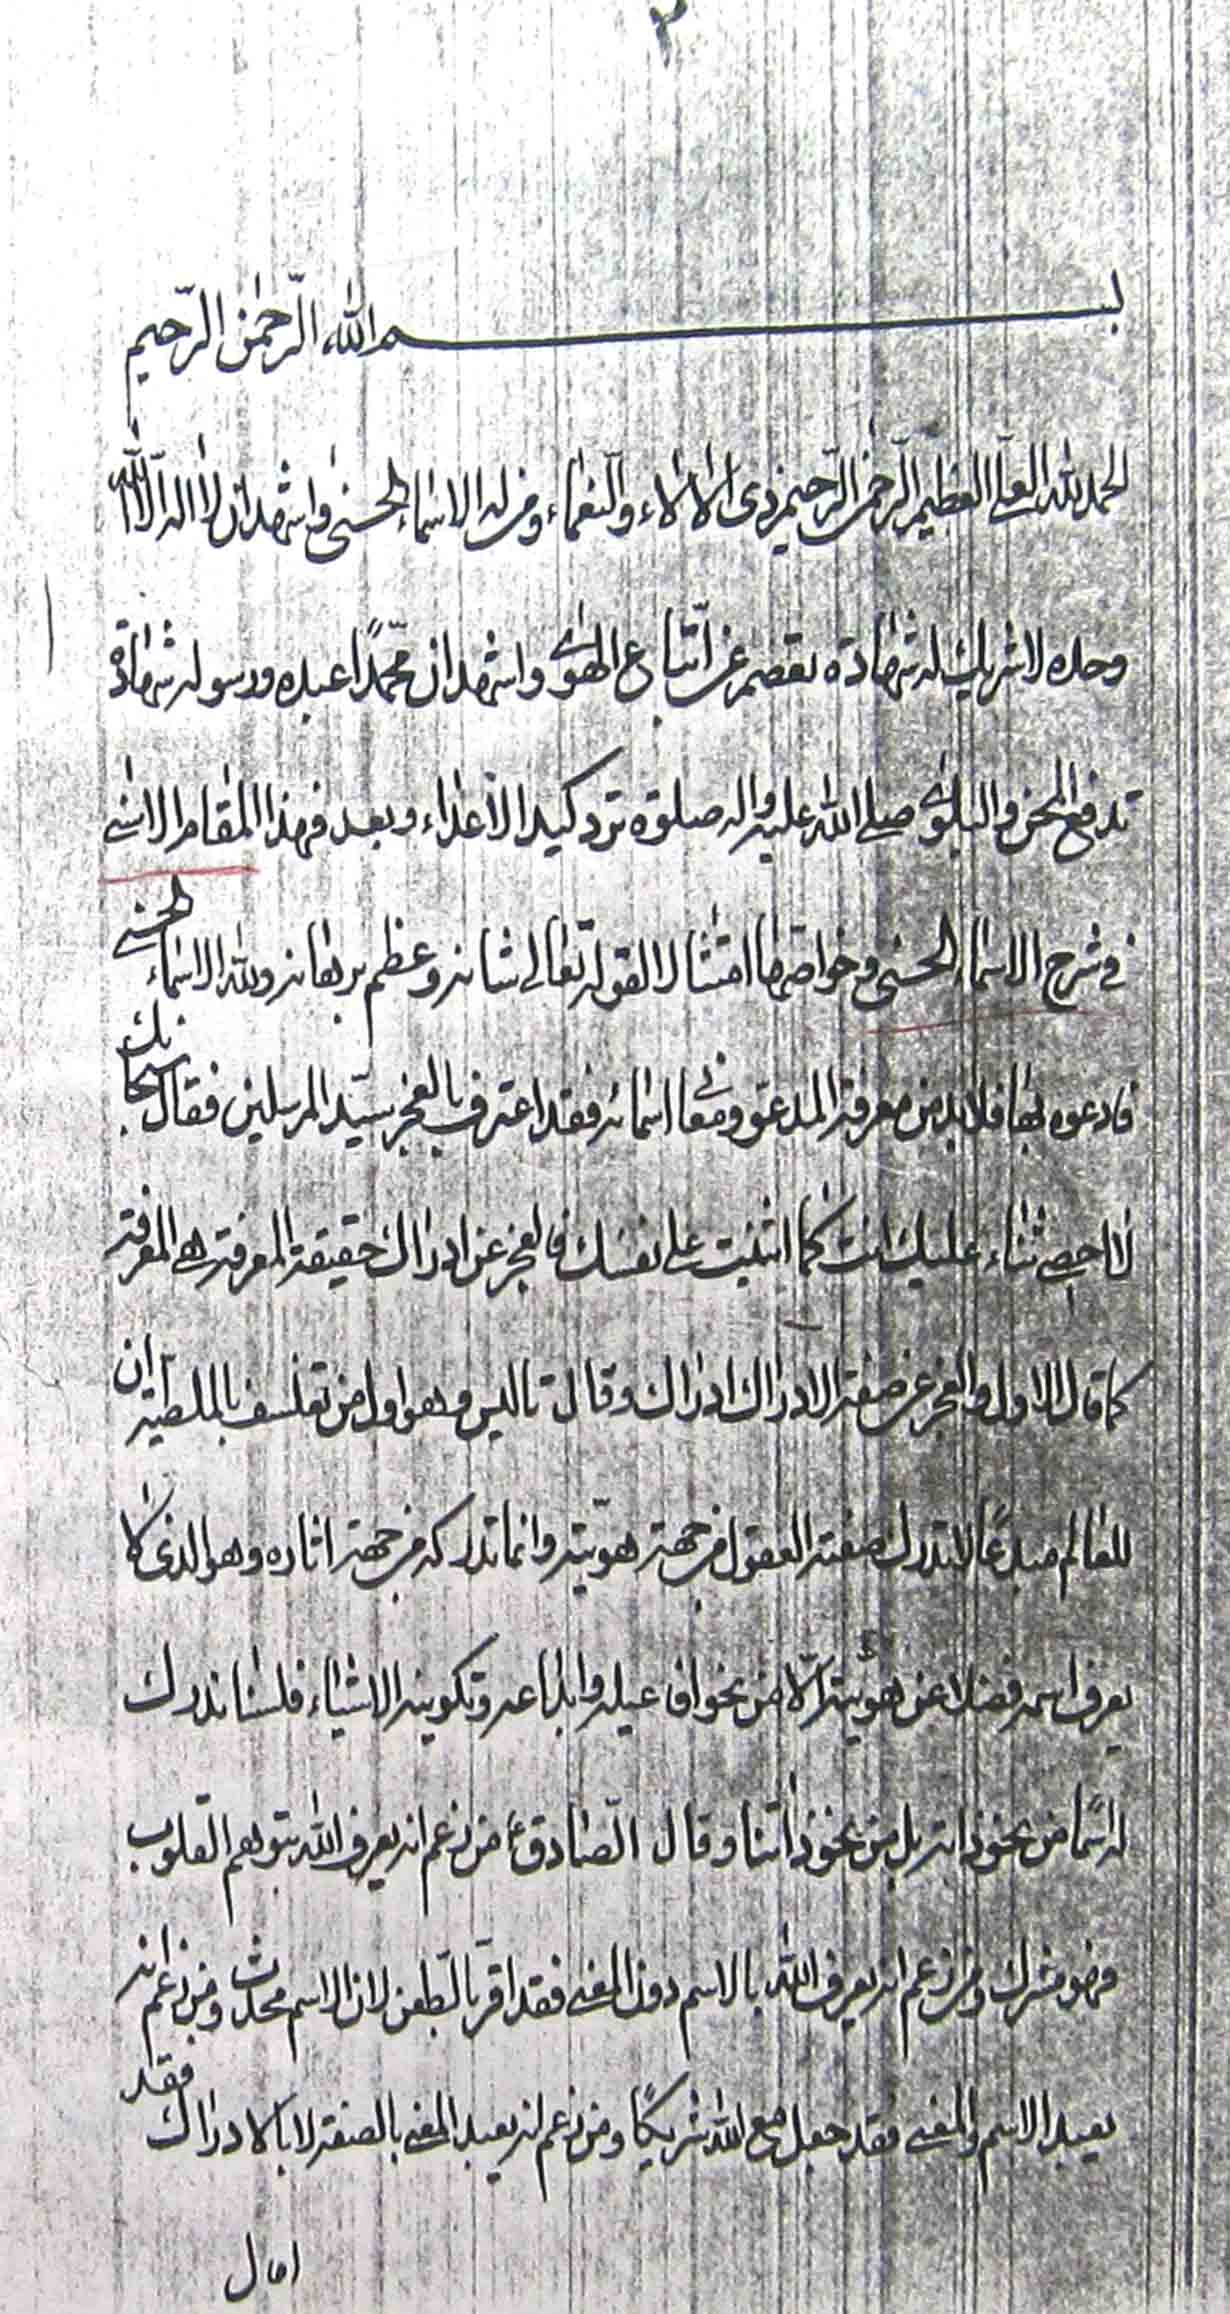 ٢
بسم الله الرّحمٰن الرّحيم
الحمد لله العلىّ العظيم الرّحمٰن الرّحيم ذى الالاء والنّعماء ومن له الاسماء الحسنى واشهد ان لا اله الّا الله
وحده لا شريك له شهادة تعصم عن اتّباع الهوى واشهد ان محمّدًا عبده ورسوله شهادة
تدفع المحن والبلوى صلى الله عليه واله صلوة ترد كيد الاعداء وبعد فهذا المقام الاسنى
فى شرح الاسماء الحسنى وخواصها امتثالا لقوله تعالى شانه وعظم برهانه ولله الاسماء الحسنى
فادعوه بها فلابد من معرفة المدعوّ ومعانى اسمائه فقد اعترف بالعجز سيّد المرسلين فقال سبحانك
لا احصى ثناء عليك انت كما اثنيت على نفسك فالعجز عن ادراك حقيقة المعرفة هى المعرفة
كما قال الاول والعجز عن صفة الادراك ادراك وقال تاليس وهو اول من تفلسف بالملطية ان
للعالم مبدعًا لا تدرك صفته العقول من جهة هويّته وانما تدركه من جهة اثاره وهو الذى لا
يعرف اسمه فضلا عن هويّته الّا من نحو افاعيله وابداعه وتكوينه الاشياء فلسنا ندرك
له اسمًا من نحو ذاته بل من نحو ذاتنا وقال الصّادق ع من زعم انه يعرف الله بتوهم القلوب
فهو مشرك ومن زعم انه يعرف الله بالاسم دون المعنى فقد اقرّ بالطّعن لان الاسم محدث ومن زعم انه
يعبد الاسم والمعنى فقد جعل مع الله شريكًا ومن زعم انه يعبد المعنى بالصفة لا بالادراك فقد
احال